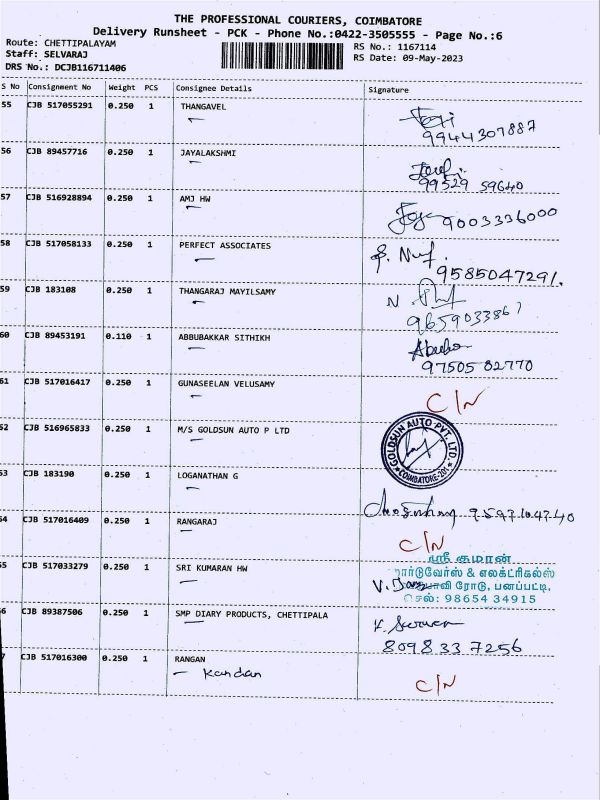 THE PROFESSIONAL COURIERS, COIMBATORE
Delivery Runsheet - PCK - Phone No.:0422-3505555 - Page No.:6
Route: CHETTIPALAYAM
Staff: SELVARAJ
DRS No.: DCJB116711406
RS No.: 1167114
RS Date: 09-May-2023
S No Consignment No Weight PCS Consignee Details Signature
55 CJB 517055291 0.250 1 THANGAVEL
9944307887
56 CJB 89457716 0.250 1 JAYALAKSHMI
99529 59640
57 CJB 516928894 0.250 1 AMJ HW
9003336000
58 CJB 517058133 0.250 1 PERFECT ASSOCIATES
9585047291.
59 CJB 183108 0.250 1 THANGARAJ MAYILSAMY
9659033867
60 CJB 89453191 0.110 1 ABBUBAKKAR SITHIKH
97505 82770
61 CJB 517016417 0.250 1 GUNASEELAN VELUSAMY
C/N
52 CJB 516965833 0.250 1 M/S GOLDSUN AUTO P LTD
GOLDSUN AUTO PVT. LTD.
COIMBATORE-201
53 CJB 183190 0.250 1 LOGANATHAN G
54 CJB 517016409 0.250 1 RANGARAJ
C/N
55 CJB 517033279 0.250 1 SRI KUMARAN HW
ஸ்ரீ குமரன்
ஹார்டுவேர்ஸ் & எலக்ட்ரிகல்ஸ்
ரோடு, பனப்பட்டி,
செல்: 98654 34915
6 CJB 89387506 0.250 1 SMP DIARY PRODUCTS, CHETTIPALA
8098 33 7256
7 CJB 517016300 0.250 1 RANGAN
Kandan
C/N